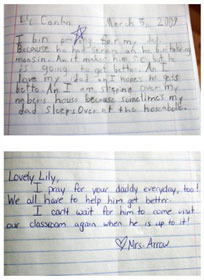 March 5, 2009
I bin for my dad
Because he had serjere an he is taking
An it makes him but he
is going to get better. An I
love my dad and I hope he gets
betto. An I am sleping over my
nebers house because sometimes my
dad sleeps over at the hospital.
Lovely Lily,
I pray for your daddy everyday, too!
We all have to help him get better.
I can't wait for him to come visit
our classroom again when he is up to it!
♡ Mrs. Arrow